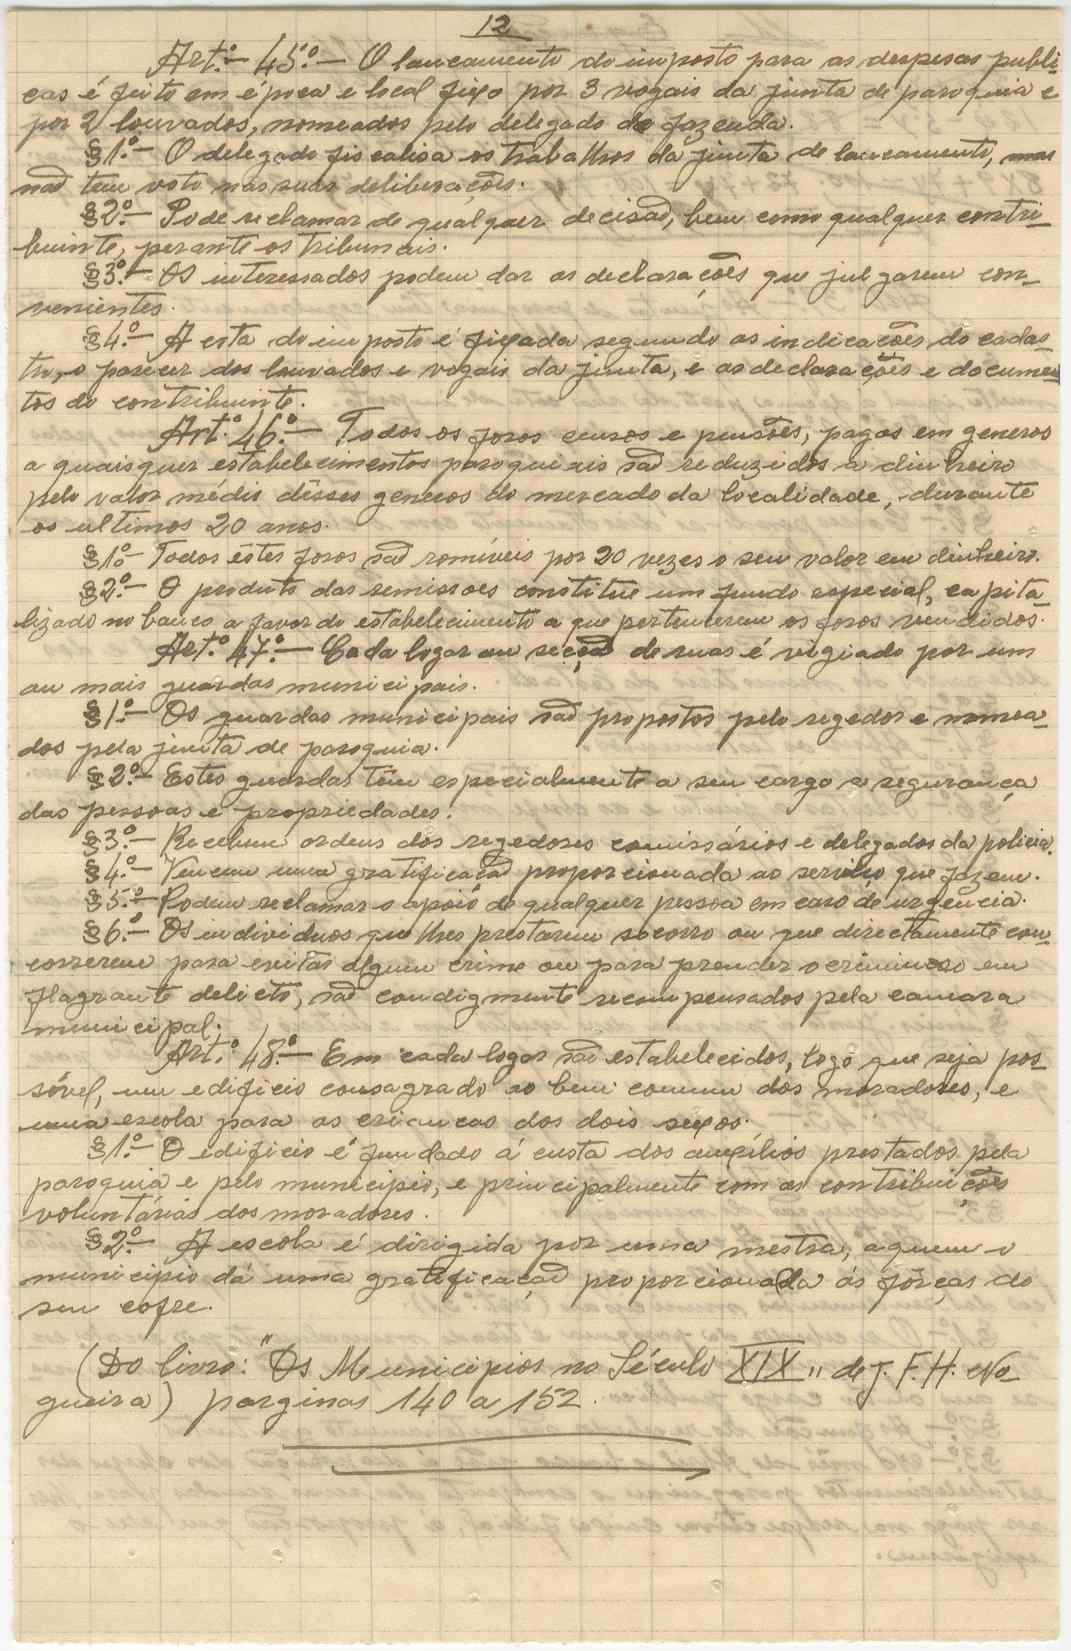 12
Art.º - 45.º - O lancamento do imposto para as despesas publi-
cas é feito em época e local fixo por 3 vogais da junta de paroquia e
por 2 louvados, nomeados pelo delegado de fazenda.
§1.º - O delegado fiscalisa os trabalhos da junta de lancamento, mas
não tem voto nas suas deliberações.
§2.º - Pode reclamar de qualquer decisão, bem como qualquer contri-
buinte, perante os tribunais.
§3.º - Os interessados podem dar as declarações que julgarem con-
venientes.
§4.º - A cota do imposto é fixada segundo as indicações do cadas-
tro, o parecer dos louvados e vogais da junta, e as declarações e documen-
tos do contribuinte.
Art.º 46.º - Todos os foros censos e pensões, pagos em generos
a quaisquer estabelecimentos paroquiais são reduzidos a dinheiro
pelo valor médio dêsses generos do mercado da localidade, durante
os ultimos 20 anos.
§1.º - Todos êstes foros são romíveis por 20 vezes o seu valor em dinheiro.
§2.º - O produto das remissoes constitue um fundo especial, capita-
lizado no banco a favor do estabelecimento a que pertencerem os foros vendidos.
Art.º 47.º - Cada logar ou secção de ruas é vigiado por um
ou mais guardas municipais.
§1.º - Os guardas municipais são propostos pelo regedor e nomea-
dos pela junta de paroquia.
§2.º - Estes guardas têm especialmente a seu cargo a segurança
das pessoas e propriedades.
§3.º - Recebem ordens dos regedores comissários e delegados da policia.
§4.º - Vencem uma gratificação proporcionada ao serviço que fazem.
§5.º - Podem reclamar o apoio de qualquer pessoa em caso de urgência.
§6.º - Os individuos que lhes prestarem socorro ou que directamente con-
correrem para evitar algum crime ou para prender o criminoso em
flagrante delicto, são condigmente recompensados pela camara
municipal.
Art.º 48.º - Em cada logar são estabelecidos, logo que seja pos-
sível, um edificio consagrado ao bem comum dos moradores, e
uma escola para as criancas dos dois sexos.
§1.º - O edificio é fundado á custa dos auxílios prestados pela
paroquia e pelo municipio, e principalmente com as contribuições
voluntárias dos moradores.
§2.º - A escola é dirigida por uma mestra, a quem o
municipio dá uma gratificação proporcionada ás fôrças do
seu cofre.
(Do livro: "Os Municipios no Século XIX" de J. F. H. No-
gueira) parginas 140 a 152.